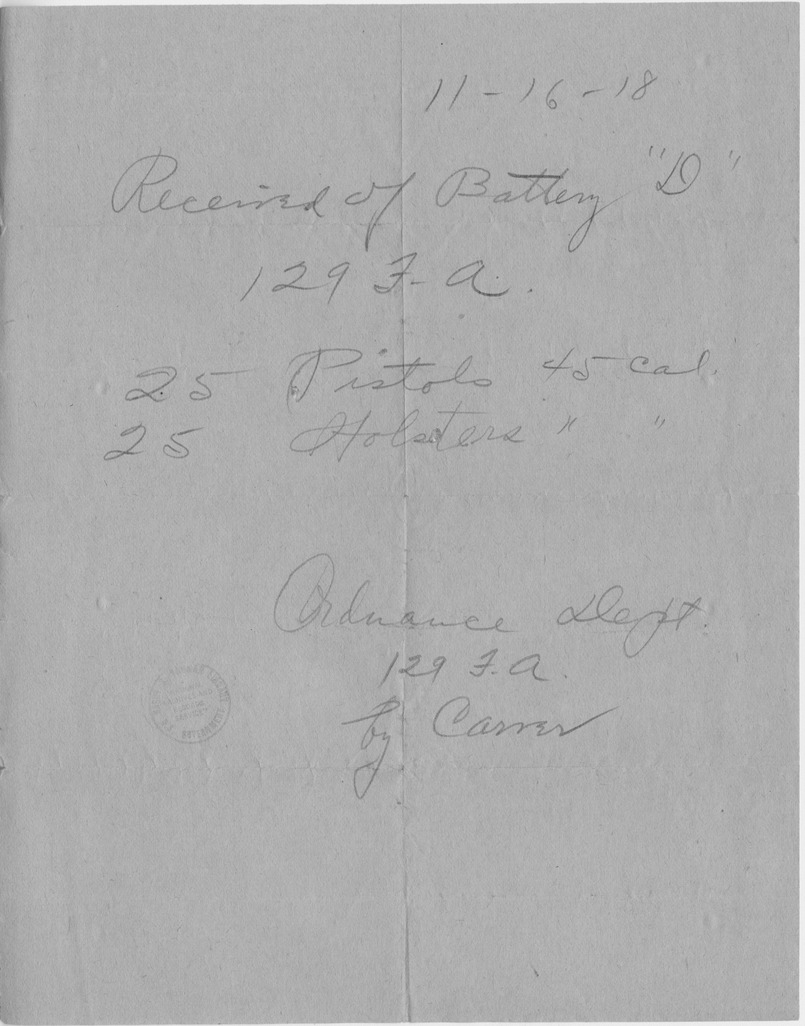 11-16-18
Received of Battery "D"
129 F. A.
25 Pistols 45 cal.
25 Holsters " "
Ordnance Dept.
129 F. A.
by Carver